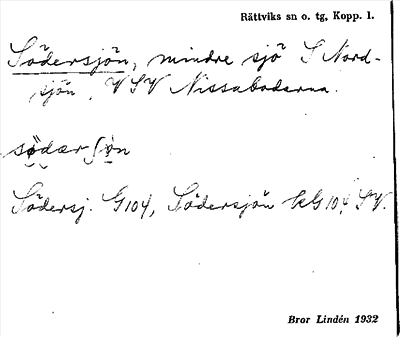 Rättviks sn o. tg, Kopp. l.
Södersjön, mindre sjö S Nord-
sjön, VSV Nissaboderna.
södær ʃön
Södersj. G104, Södersjön kG104 SV.
Bror Lindén 1932